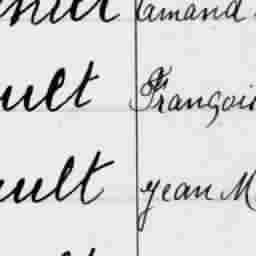 amand
ult Françoi
ult Jean M